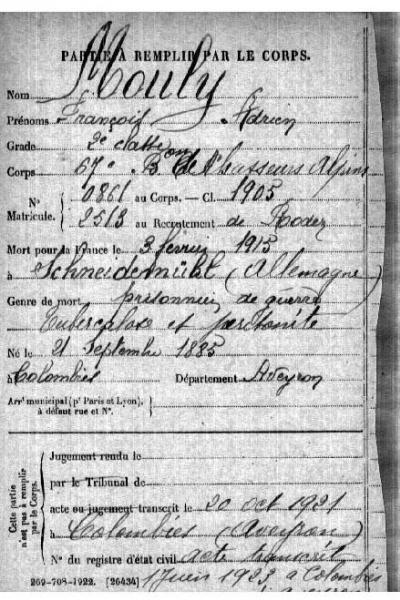 PARTIE À REMPLIR PAR LE CORPS.
Nom Mouly
Prénoms François Adrien
Grade 2e classe
Corps 67e Bon de Chasseurs Alpins
N° 0861 au Corps. — Cl. 1905
Matricule. 2513 au Recrutement de Rodez
Mort pour la France le 3 février 1915
à Schneidemühl (Allemagne)
Genre de mort prisonnier de guerre
Tuberculose et péritonite
Né le 21 Septembre 1885
à Colombiès Département Aveyron
Arrt municipal (pr Paris et Lyon),
à défaut rue et N°.
Cette partie
n'est pas à remplir
par le Corps.
Jugement rendu le
par le Tribunal de
acte ou jugement transcrit le 20 oct 1921
à Colombiès (Aveyron)
N° du registre d'état civil acte transcrit
1 juin 1923 à Colombiès
269-708-1922. [26434] Aveyron